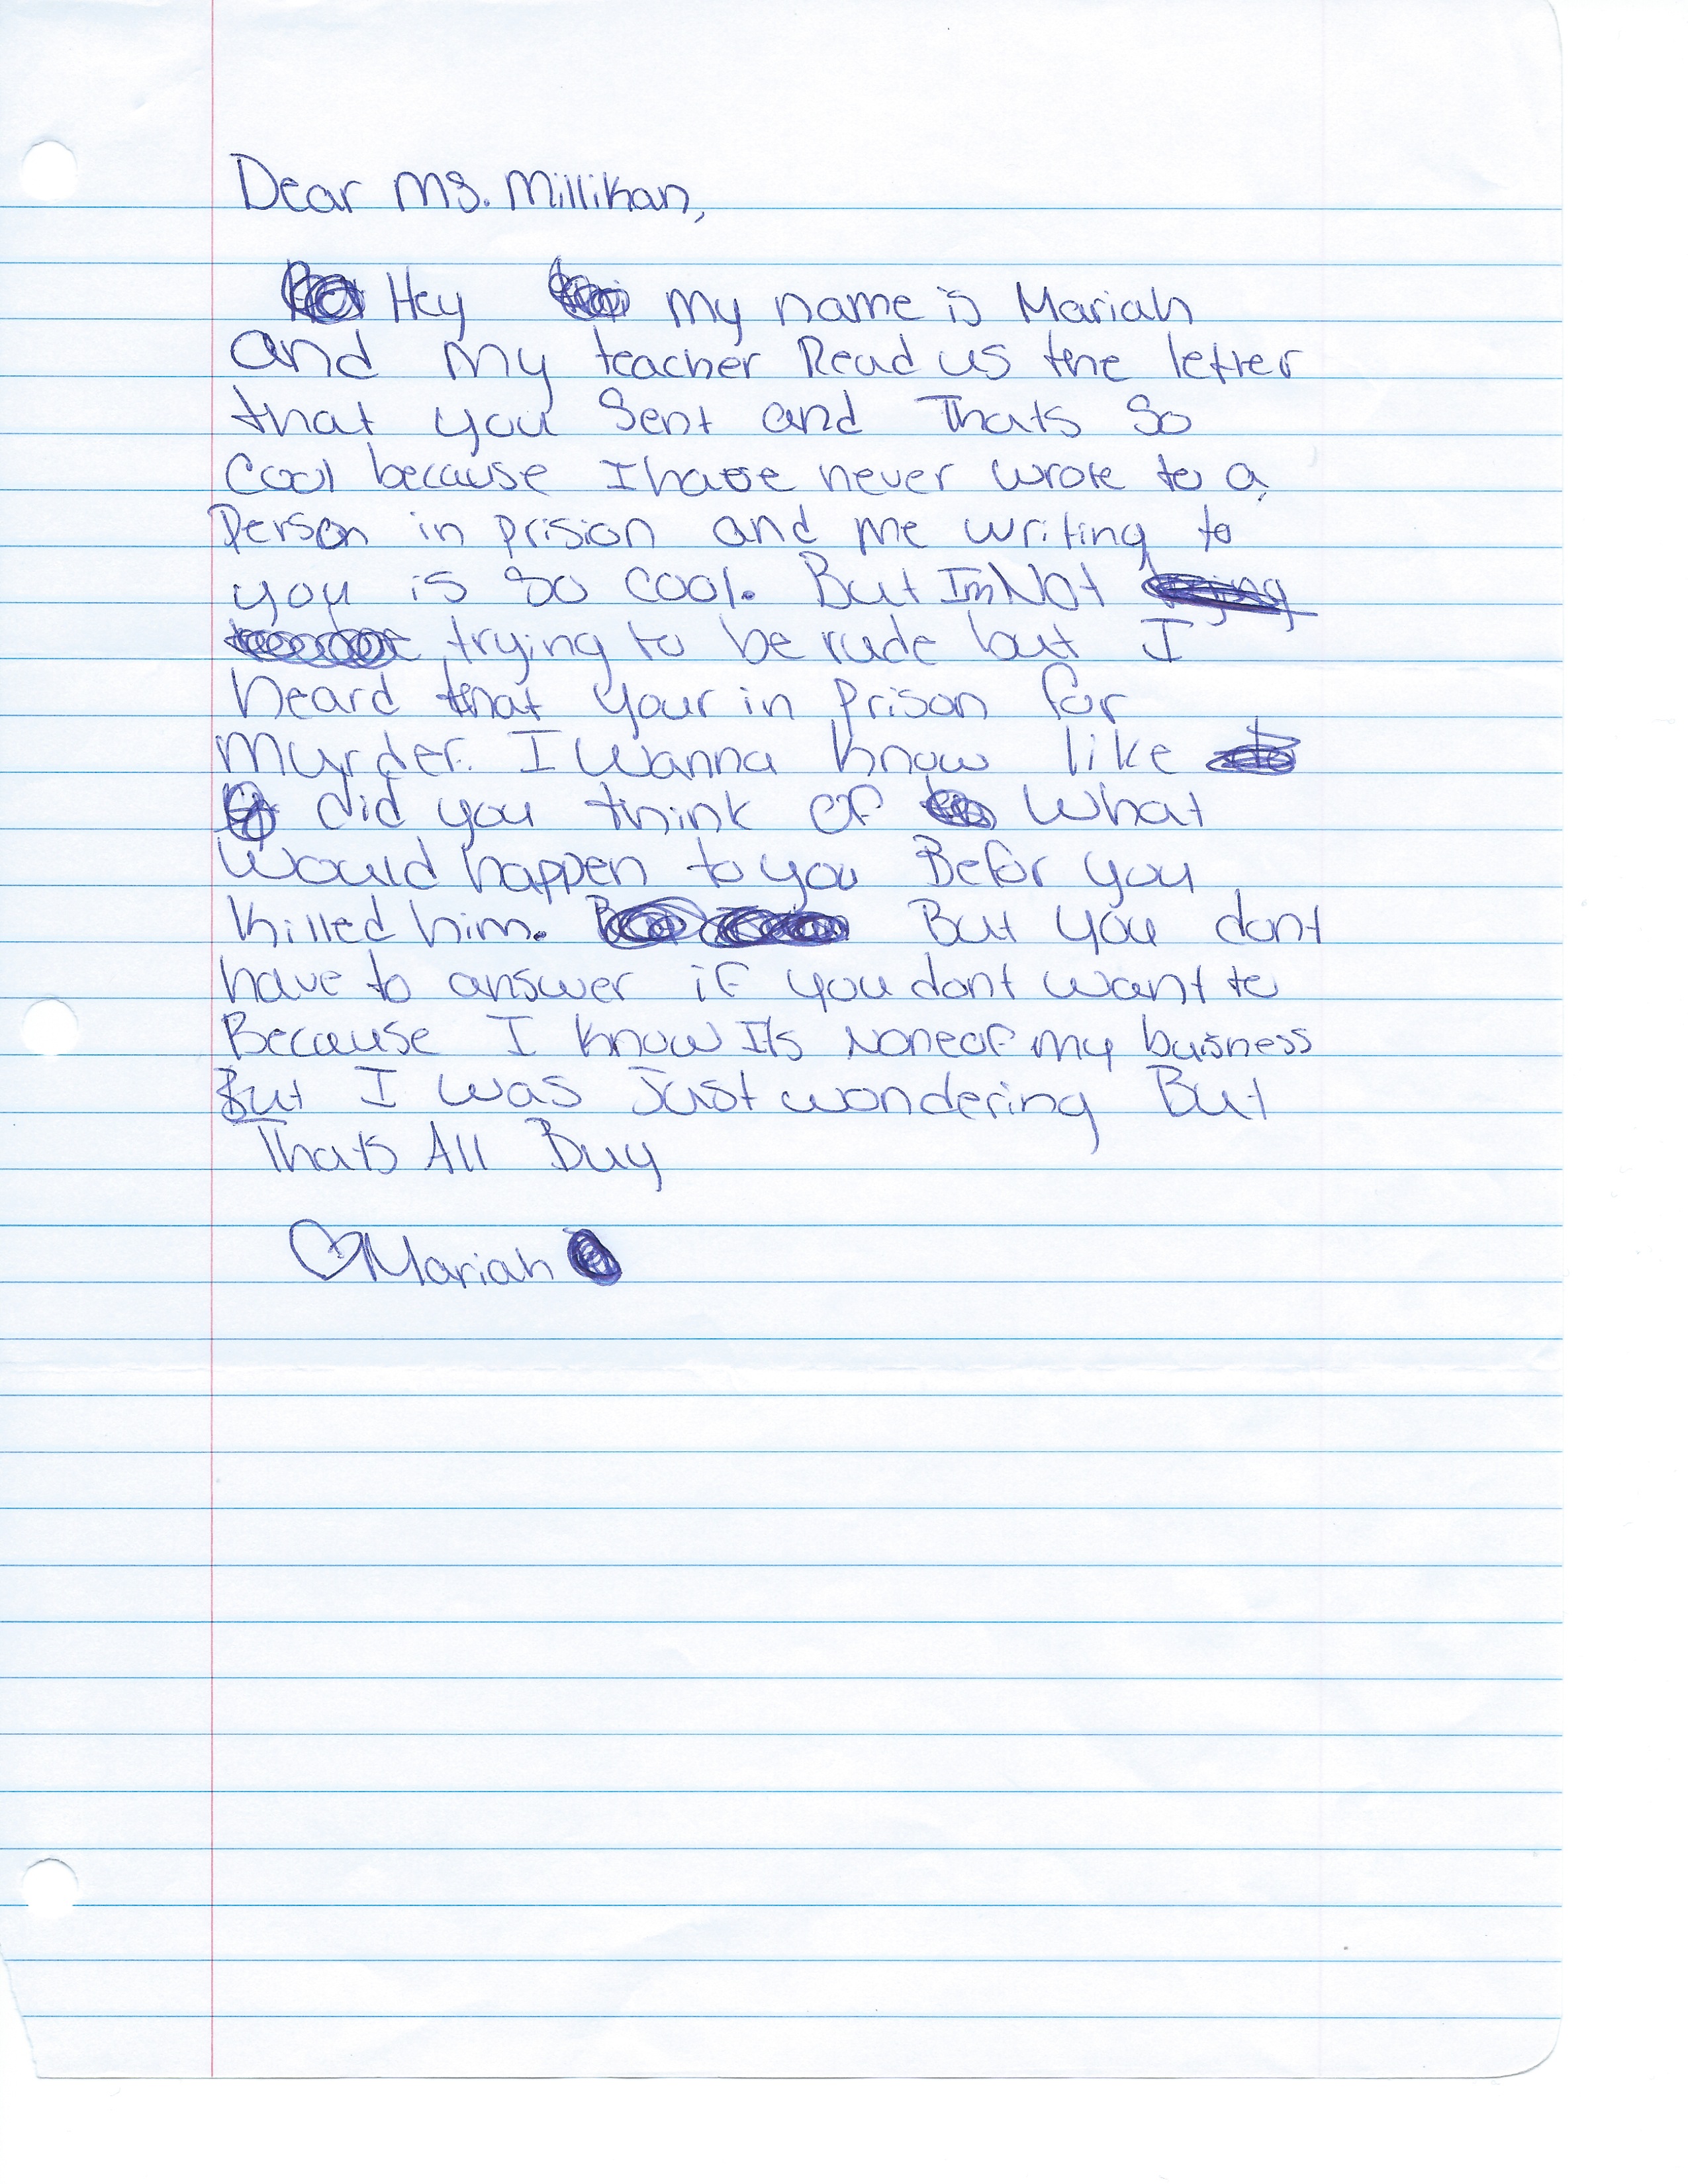 Dear Ms. Millikan,
Hey my name is Mariah
and my teacher Read us the letter
that you Sent and Thats So
Cool because I have never wrote to a
Person in prision and me writing to
you is so cool. But Im Not
trying to be rude but I
heard that your in prison for
Murder. I wanna know like
did you think of what
would happen to you Befor you
killed him. But you dont
have to answer if you dont want to
Because I know It's None of my buisness
But I was Just wondering But
Thats All Buy
♡Mariah